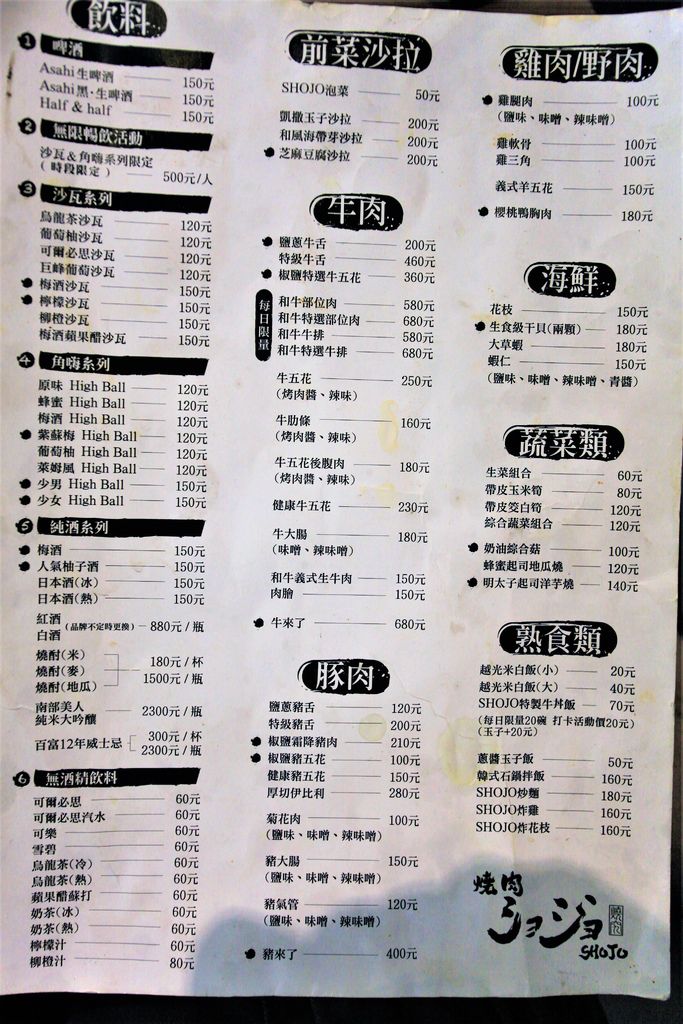 飲料
1 啤酒
Asahi生啤酒 150元
Asahi黑‧生啤酒 150元
Half & half 150元
2 無限暢飲活動
沙瓦&角嗨系列限定
(時段限定) 500元/人
3 沙瓦系列
烏龍茶沙瓦 120元
葡萄柚沙瓦 120元
可爾必思沙瓦 120元
巨峰葡萄沙瓦 120元
梅酒沙瓦 150元
檸檬沙瓦 150元
柳橙沙瓦 150元
梅酒蘋果醋沙瓦 150元
4 角嗨系列
原味 High Ball 120元
蜂蜜 High Ball 120元
梅酒 High Ball 120元
紫蘇梅 High Ball 120元
葡萄柚 High Ball 120元
萊姆風 High Ball 120元
少男 High Ball 150元
少女 High Ball 150元
5 純酒系列
梅酒 150元
人氣柚子酒 150元
日本酒(冰) 150元
日本酒(熱) 150元
紅酒
白酒 (品牌不定時更換) 880元/瓶
燒酎(米)
燒酎(麥) 180元/杯
燒酎(地瓜) 1500元/瓶
南部美人
純米大吟釀 2300元/瓶
百富12年威士忌 300元/杯
2300元/瓶
6 無酒精飲料
可爾必思 60元
可爾必思汽水 60元
可樂 60元
雪碧 60元
烏龍茶(冷) 60元
烏龍茶(熱) 60元
蘋果醋蘇打 60元
奶茶(冰) 60元
奶茶(熱) 60元
檸檬汁 60元
柳橙汁 80元
前菜沙拉
SHOJO泡菜 50元
凱撒玉子沙拉 200元
和風海帶芽沙拉 200元
芝麻豆腐沙拉 200元
牛肉
鹽蔥牛舌 200元
特級牛舌 460元
椒鹽特選牛五花 360元
每日限量
和牛部位肉 580元
和牛特選部位肉 680元
和牛牛排 580元
和牛特選牛排 680元
牛五花 250元
(烤肉醬、辣味)
牛肋條 160元
(烤肉醬、辣味)
牛五花後腹肉 180元
(烤肉醬、辣味)
健康牛五花 230元
牛大腸 180元
(味噌、辣味噌)
和牛義式生牛肉 150元
肉膾 150元
牛來了 680元
豚肉
鹽蔥豬舌 120元
特級豬舌 200元
椒鹽霜降豬肉 210元
椒鹽豬五花 100元
健康豬五花 150元
厚切伊比利 280元
菊花肉 100元
(鹽味、味噌、辣味噌)
豬大腸 150元
(鹽味、味噌、辣味噌)
豬氣管 120元
(鹽味、味噌、辣味噌)
豬來了 400元
雞肉/野肉
雞腿肉 100元
(鹽味、味噌、辣味噌)
雞軟骨 100元
雞三角 100元
義式羊五花 150元
櫻桃鴨胸肉 180元
海鮮
花枝 150元
生食級干貝(兩顆) 180元
大草蝦 180元
蝦仁 150元
(鹽味、味噌、辣味噌、青醬)
蔬菜類
生菜組合 60元
帶皮玉米筍 80元
帶皮筊白筍 120元
綜合蔬菜組合 120元
奶油綜合菇 100元
蜂蜜起司地瓜燒 120元
明太子起司洋芋燒 140元
熟食類
越光米白飯(小) 20元
越光米白飯(大) 40元
SHOJO特製牛丼飯 70元
(每日限量20碗 打卡活動價20元)
(玉子+20元)
蔥醬玉子飯 50元
韓式石鍋拌飯 160元
SHOJO炒麵 180元
SHOJO炸雞 160元
SHOJO炸花枝 160元
燒肉
ショジョ
SHOJO